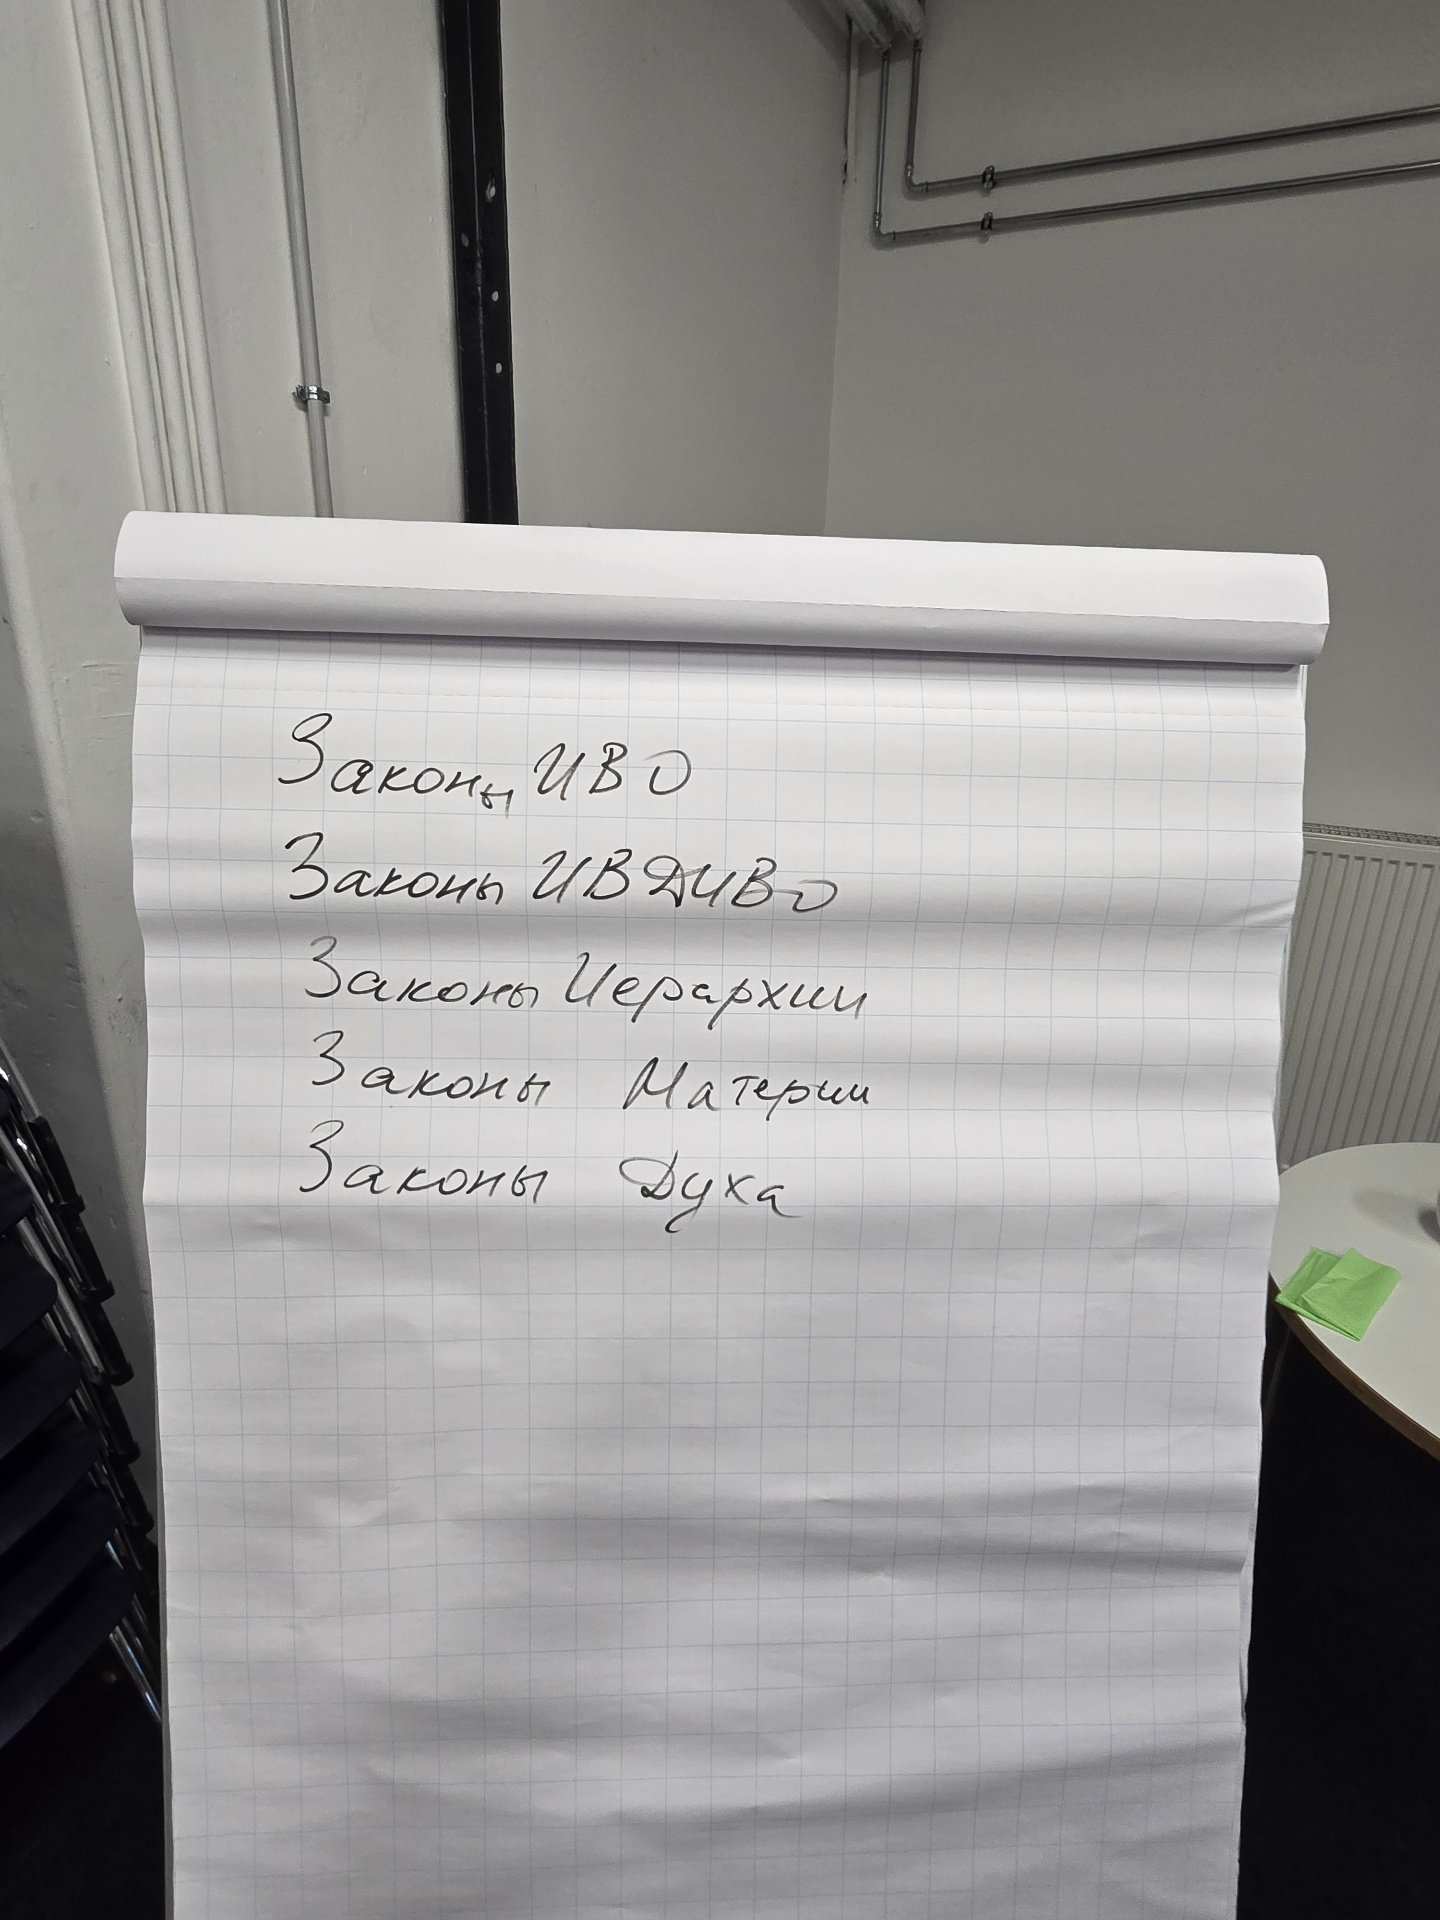 Законы ИВО
Законы ИВДИВО
Законы Иерархии
Законы Материи
Законы Духа